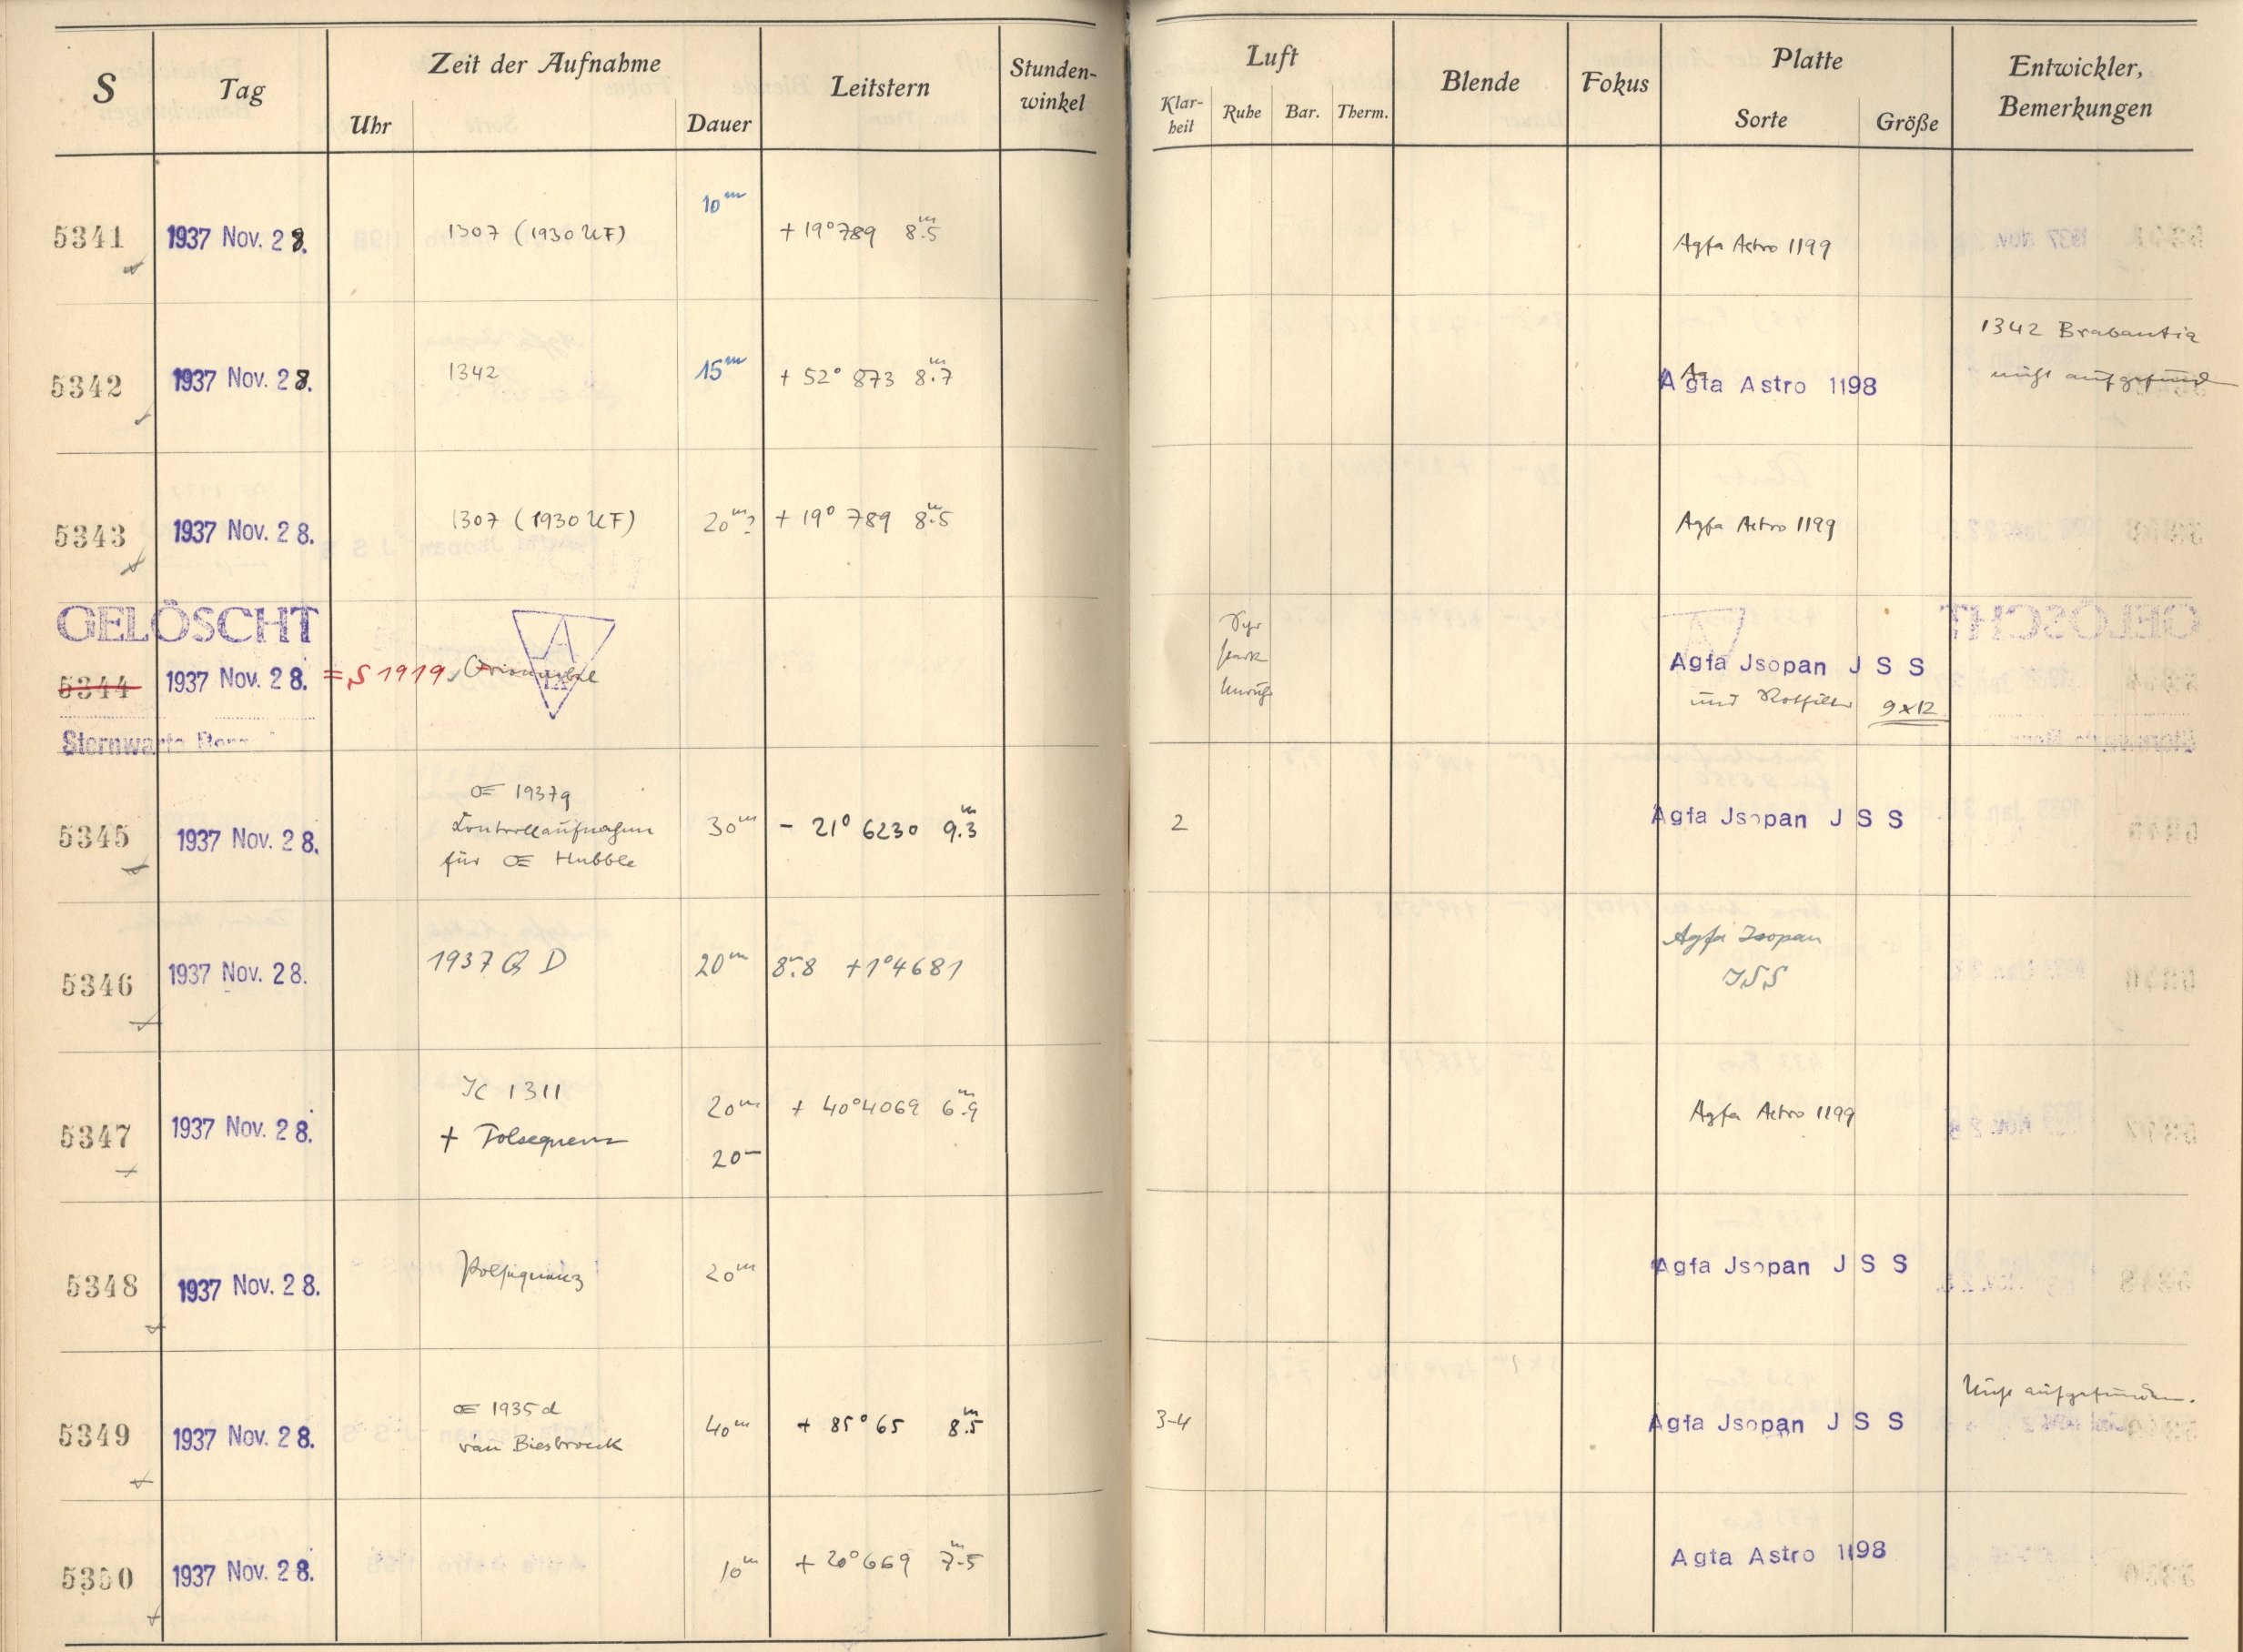 S Tag Zeit der Aufnahme Leitstern Stunden-winkel Luft Blende Fokus Platte Entwickler, Bemerkungen
Uhr Dauer Klar-heit Ruhe Bar. Therm. Sorte Größe
5341 1937 Nov. 28. 1307 (1930 UF) 10m +19°789 8m.5 Agfa Astro 1199
5342 1937 Nov. 28. 1342 15m +52° 873 8m.7 Agfa Astro 1198 1342 Brabantia
nicht aufgefund
5343 1937 Nov. 28. 1307 (1930 UF) 20m? +19° 789 8m.5 Agfa Astro 1199
GELÖSCHT
5344 1937 Nov. 28. = S 1919, Orionnebel sehr stark unruhig Agfa Jsopan J S S
und Rotfilter 9x12
Sternwarte
5345 1937 Nov. 28. 1937g
Kontrollaufnahme 30m - 21° 6230 9m.3 2 Agfa Jsopan J S S
für Hubble
5346 1937 Nov. 28. 1937 QD 20m 8m.8 +1°4681 Agfa Isopan
ISS
5347 1937 Nov. 28. IC 1311 20m + 40°4069 6m.9 Agfa Astro 1199
+ Polsequenz 20m
5348 1937 Nov. 28. Polsequenz 20m Agfa Jsopan J S S
5349 1937 Nov. 28. 1935d
van Biesbroeck 40m + 85°65 8m.5 3-4 Agfa Jsopan J S S Nicht aufgefunden.
5350 1937 Nov. 28. 10m + 20°669 7m.5 Agfa Astro 1198